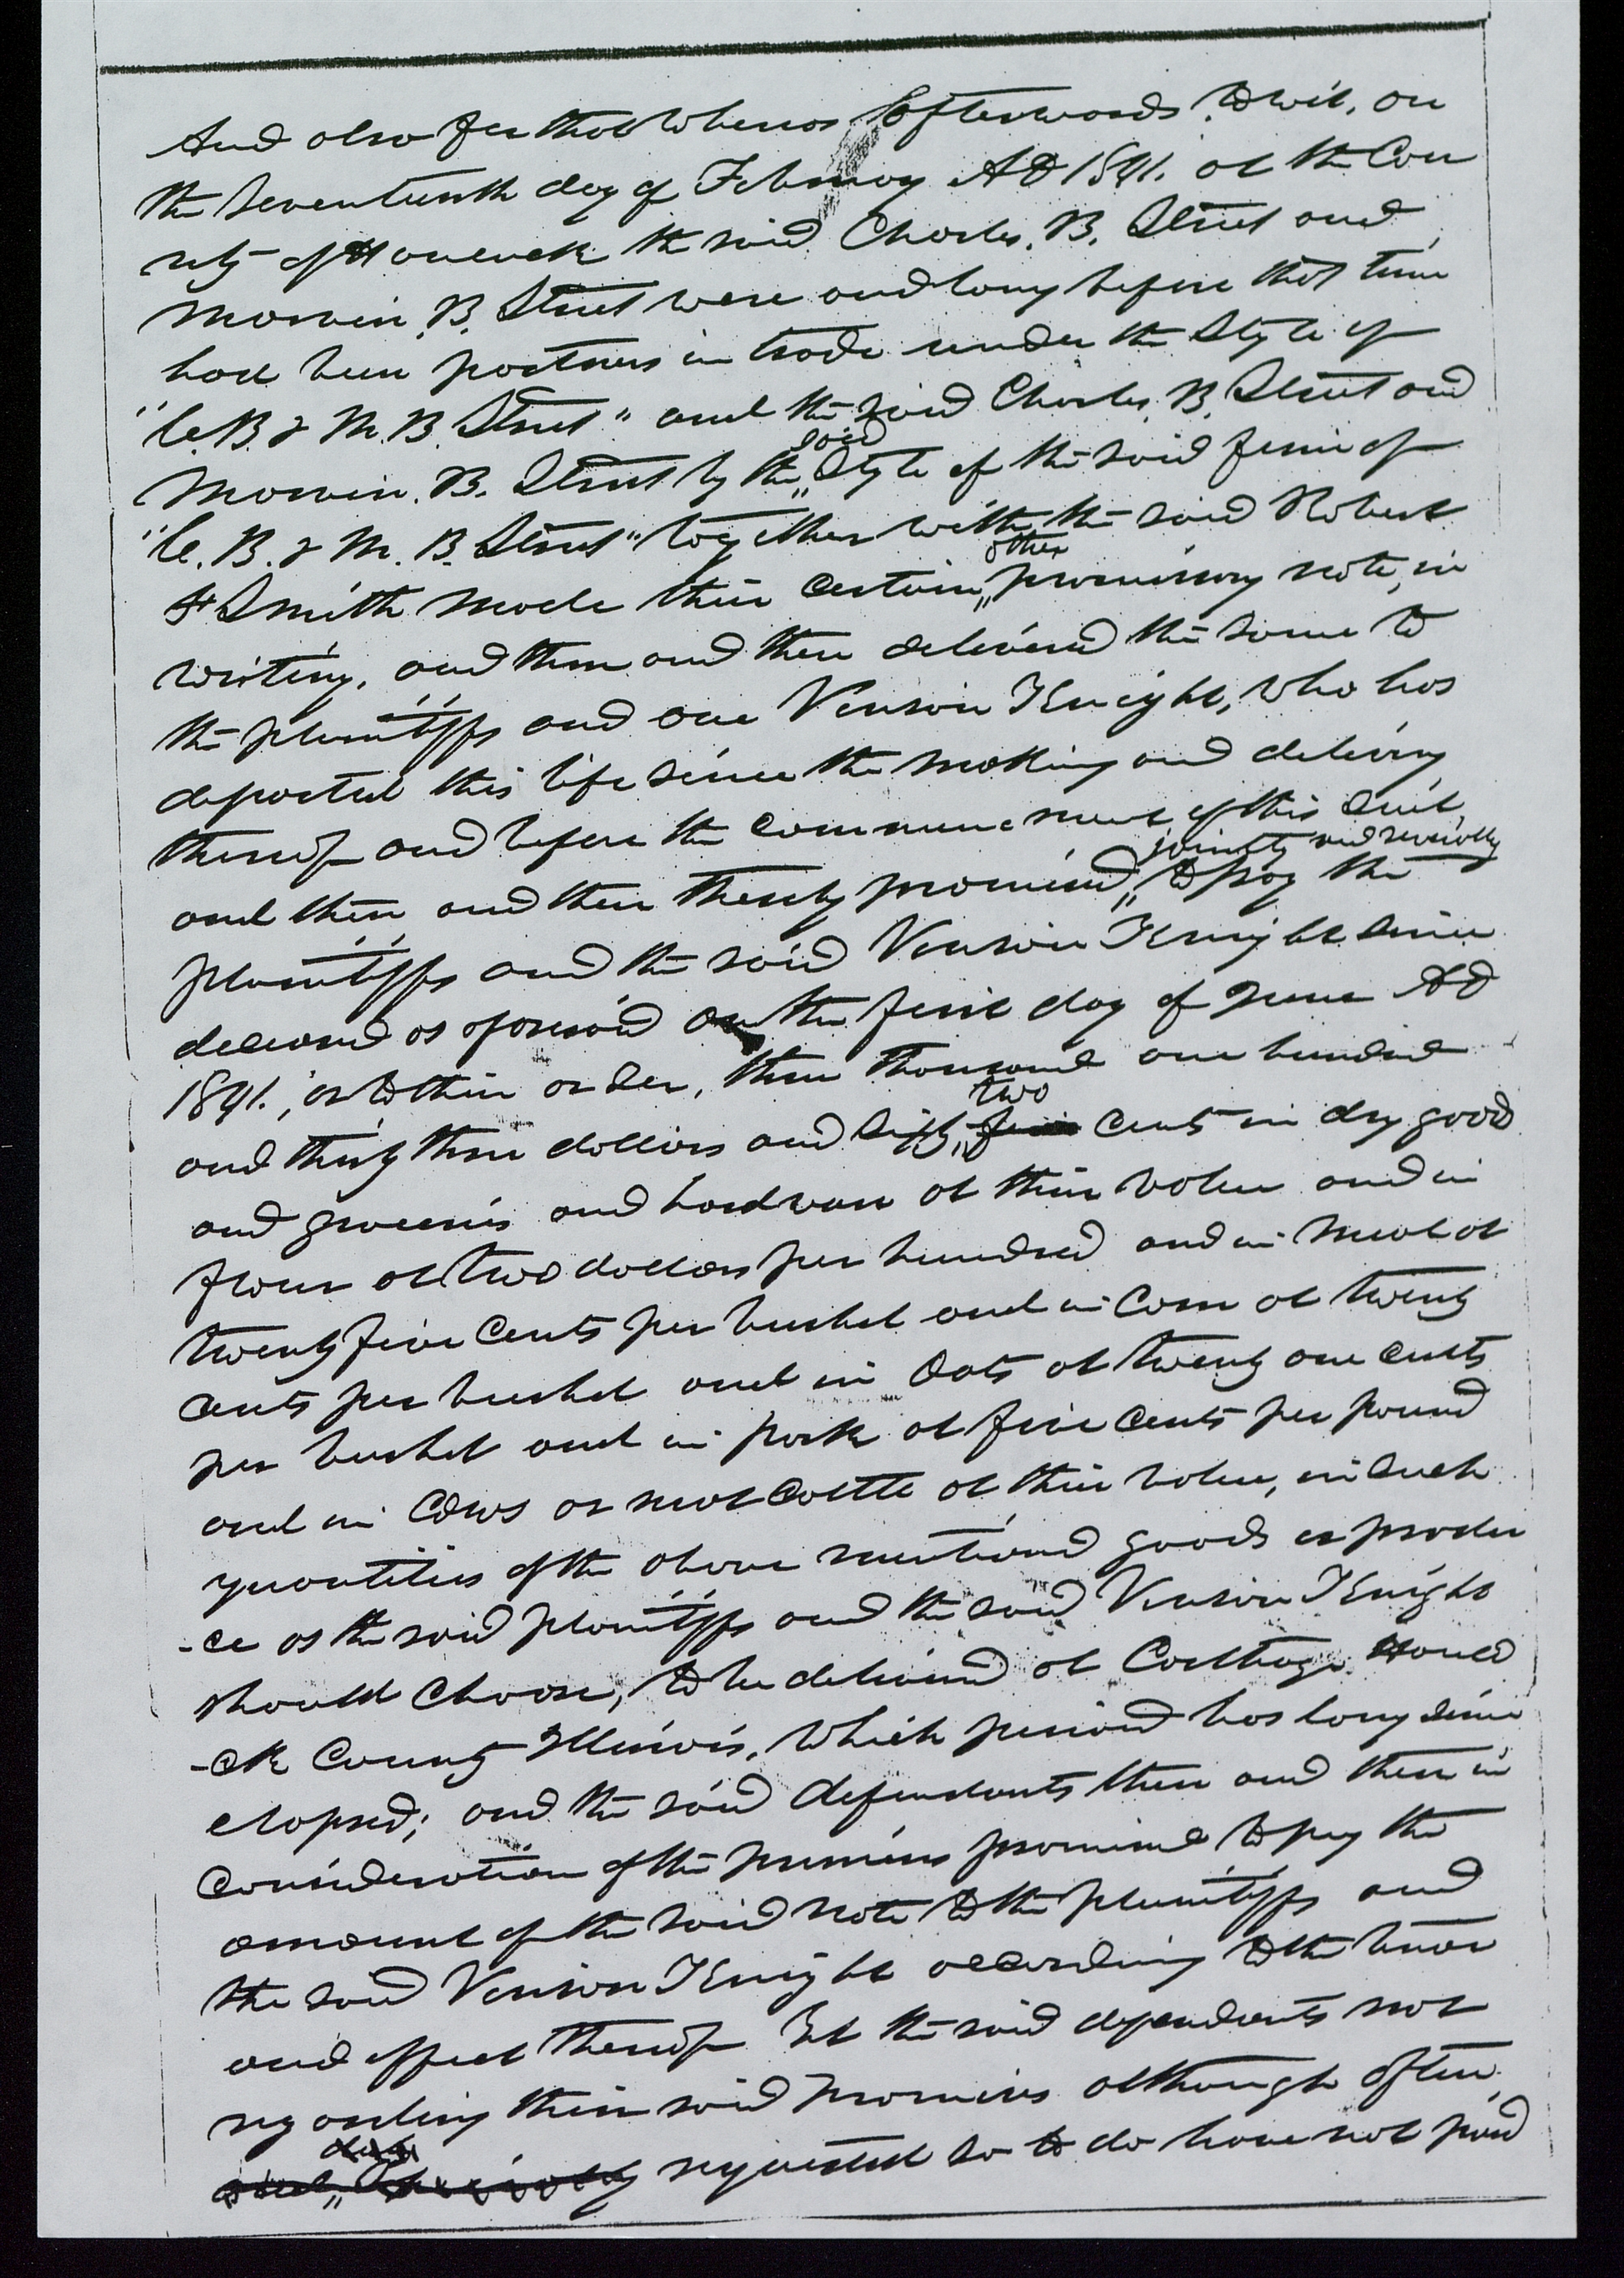 And also for that whereas afterwards, to wit, on
the Seventeenth day of February AD 1841. at the Cou
nty of Hancock the said Charles. B. Street and
Marvin. B. Street were and long before that time
had been partners in trade under the Style of
"C. B & M. B. Street" and the said Charles. B. Street and
Marvin. B. Street by the said Style of the said firm of
"C. B. & M. B. Street" together with the said Robert
F Smith made their certain other promissory note, in
writing, and then and there delivered the same to
the plaintiffs and one Vinson Knight, who has
departed this life since the making and delivery
thereof and before the commencement of this suit,
and then and there thereby promised jointly and severally to pay the
plaintiffs and the said Vinson Knight since
deceased as aforesaid on the first day of June AD
1841., or to their order, three thousand one hundred
and thirty three dollars and sixty two cents in dry good
and groceries and hardware at their value and in
flour at two dollars per hundred and in meal at
twenty five cents per bushel and in Corn at twenty
cents per bushel and in Oats at twenty one cents
per bushel and in pork at five cents per pound
and in Cows or neat Cattle at their value, in such
quantities of the above mentioned goods or produ
-ce as the said plaintiffs and the said Vinson Knight
should choose, to be delivered at Carthage Hanco
-ck County Illinois, which period has long since
elapsed; and the said defendants then and there in
Consideration of the premises promised to pay the
amount of the said note to the plaintiffs and
the said Vinson Knight according to the tenor
and effect thereof Yet the said defendants not
regarding their said promises although often
requested so to do have not paid